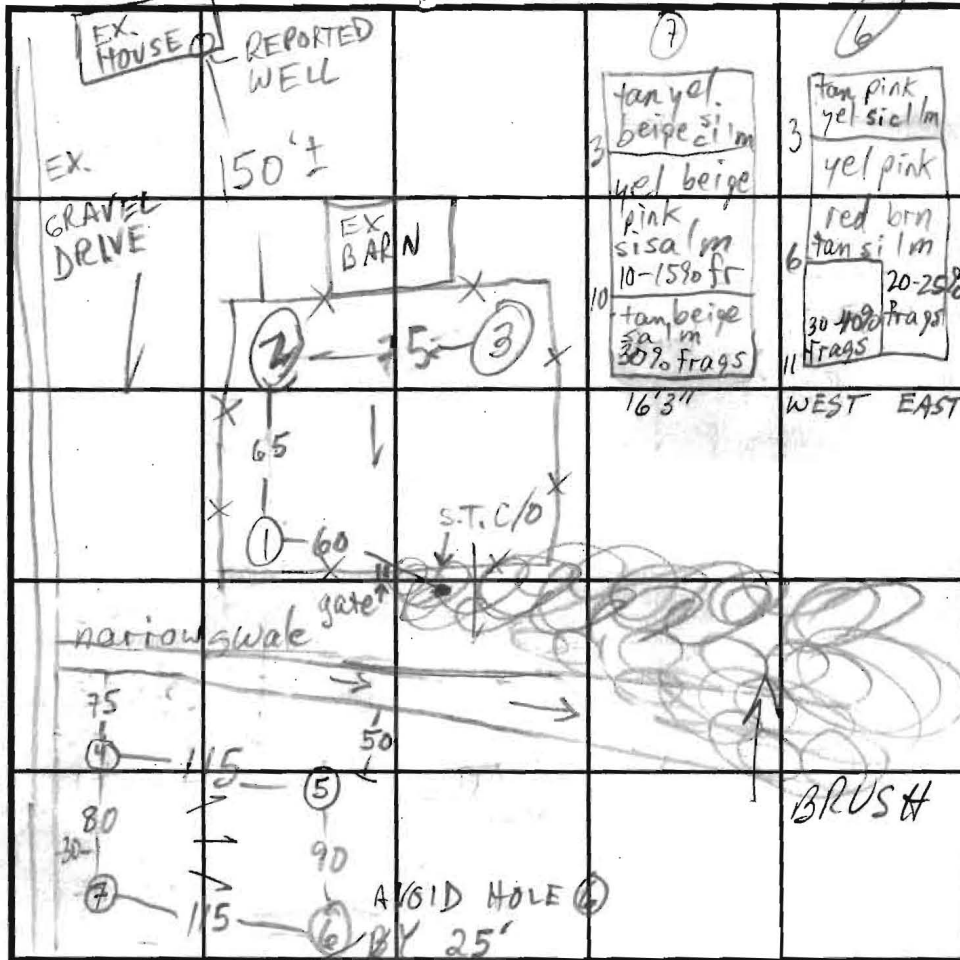 EX.
HOUSE
REPORTED
WELL
150'±
EX.
GRAVEL
DRIVE
EX
BARN
2
75
3
65
1
60
S.T. C/O
gate
narrow swale
75
50
4
115
5
80
30
90
7
115
6
AVOID HOLE 6
BY 25'
BRUSH
7
tan yel.
beige si
cl lm
3
yel beige
pink
sisalm
10-15% fr
10
tan, beige
sa lm
30% frags
16'3"
6
tan pink
yel sicl lm
3
yel pink
red brn
tan si lm
6
20-25%
frags
30-40%
frags
11
WEST EAST